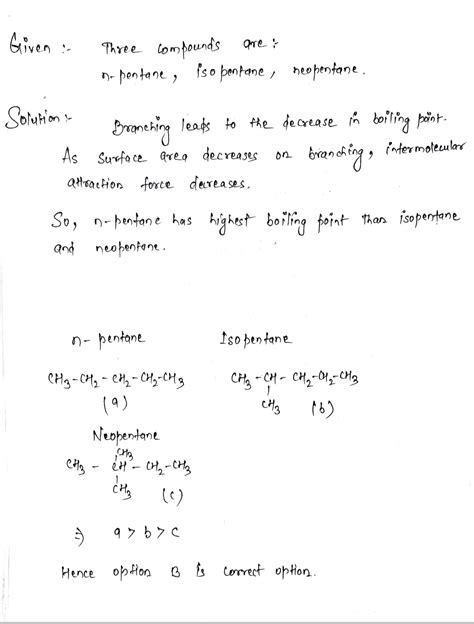 Given :- Three compounds are :
n-pentane, isopentane, neopentane.
Solution :- Branching leads to the decrease in boiling point.
As surface area decreases on branching, intermolecular
attraction force decreases.
So, n-pentane has highest boiling point than isopentane
and neopentane.
n-pentane Isopentane
CH3-CH2-CH2-CH2-CH3 CH3-CH-CH2-CH2-CH3
(a) CH3 (b)
Neopentane
CH3
CH3 - CH - CH2-CH3
CH3 (c)
⇒ a > b > c
Hence option B is correct option.